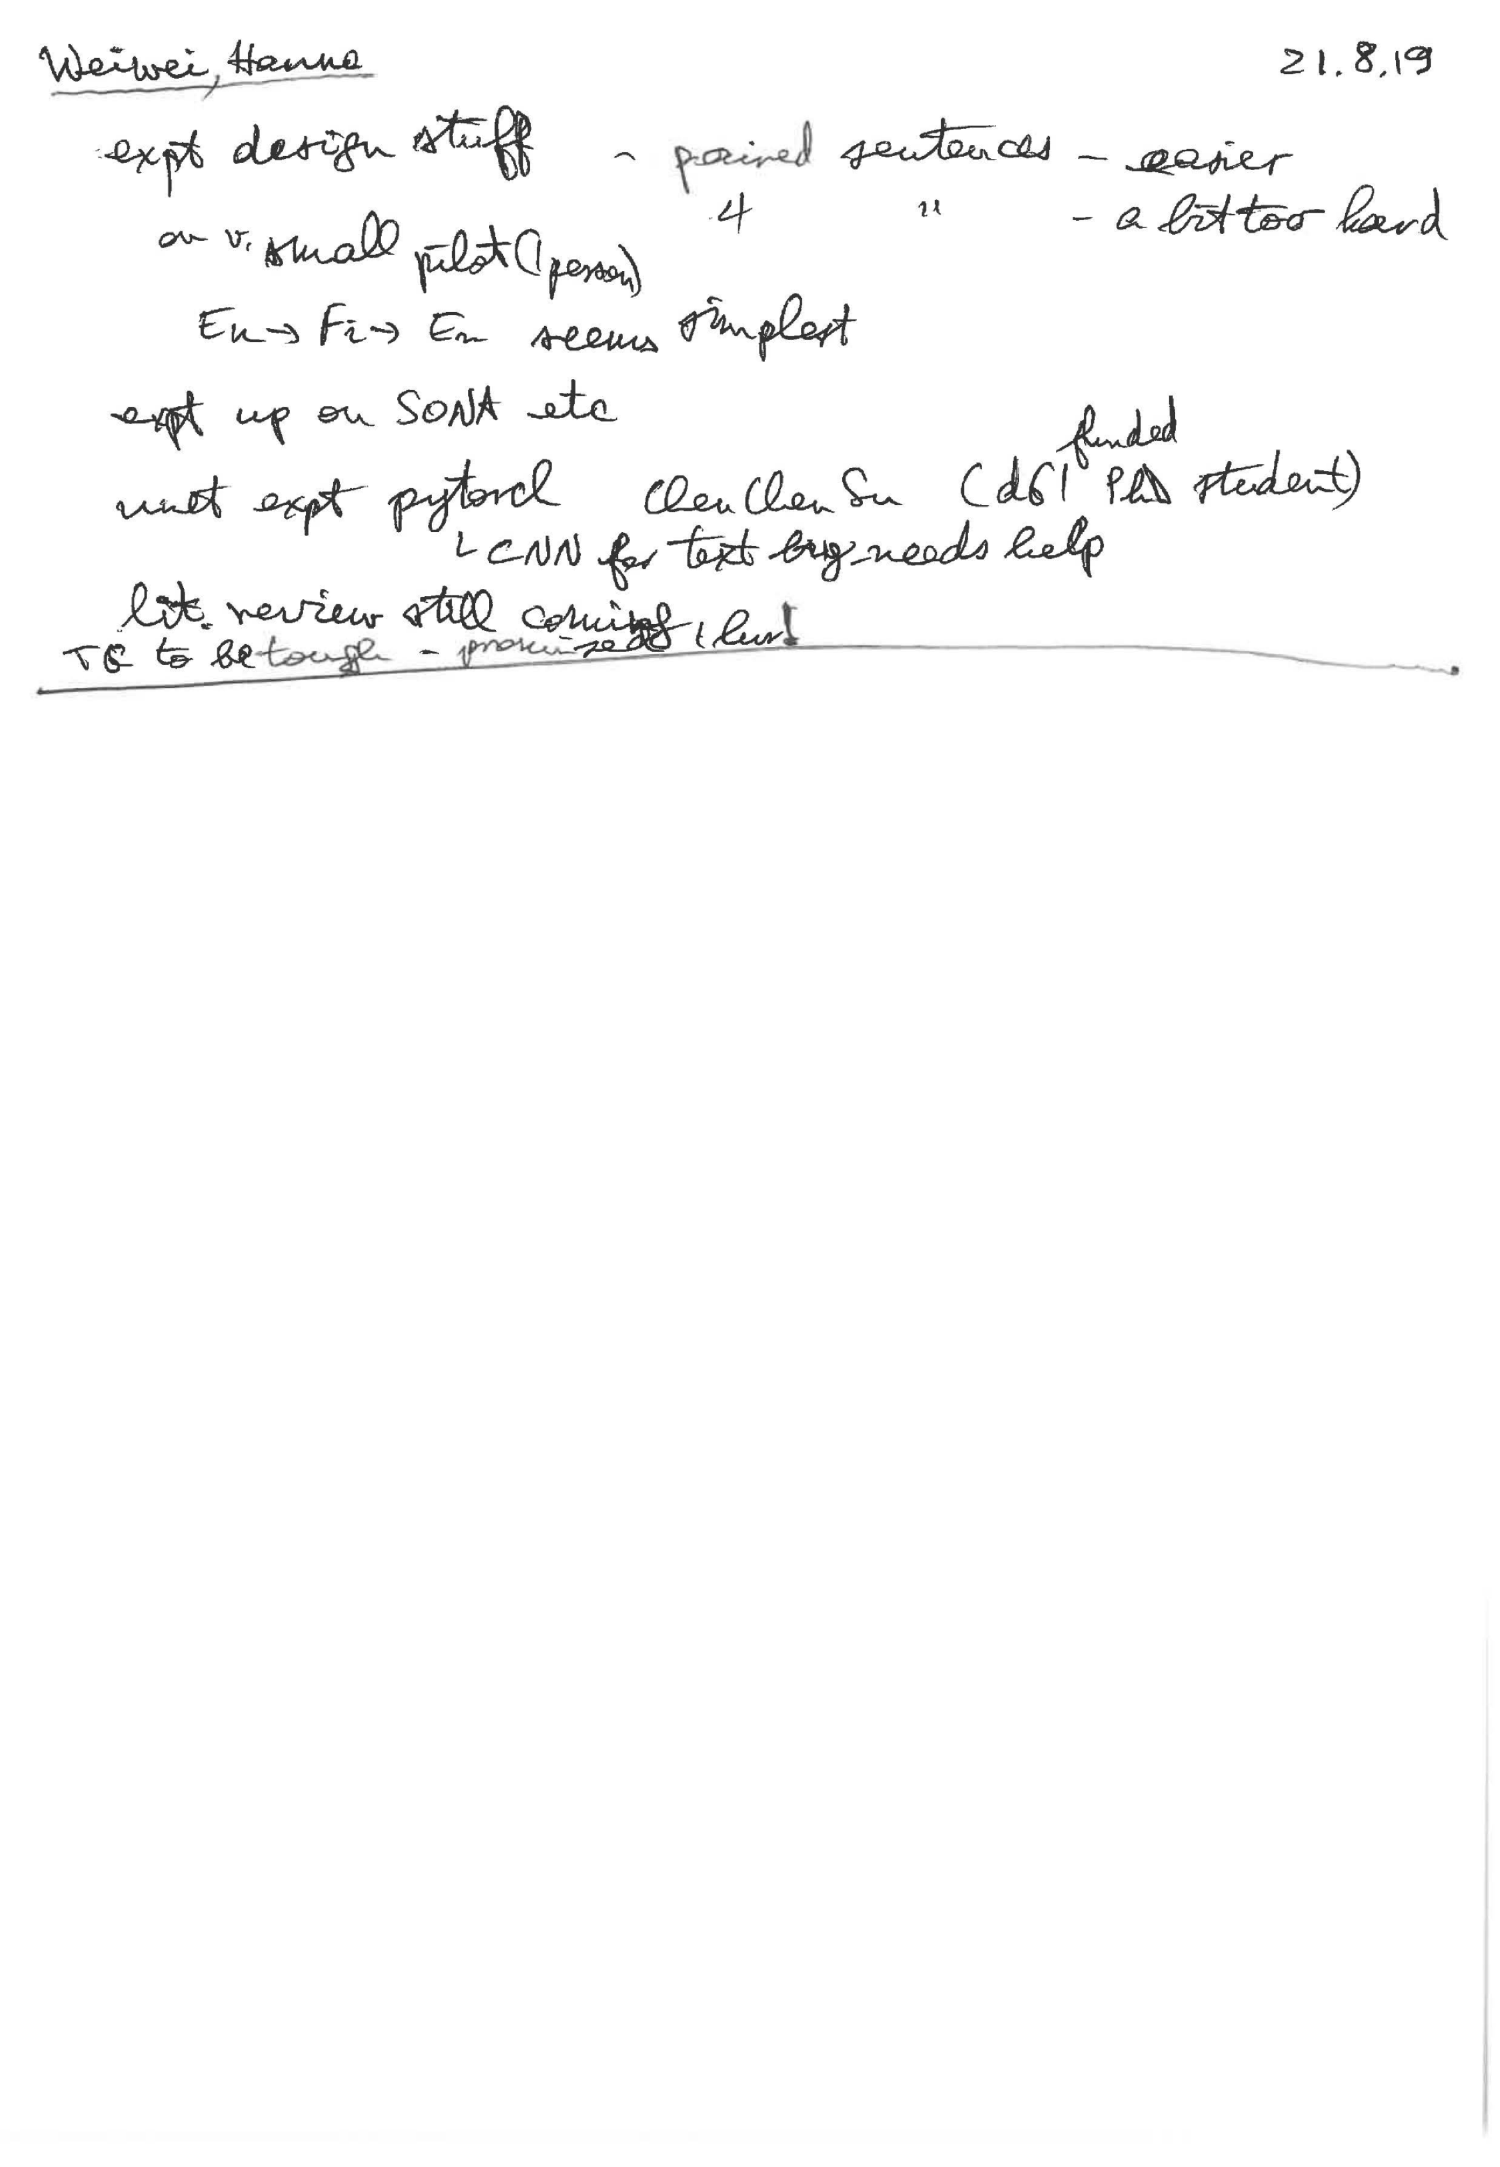 Weiwei, Hanna 21.8.19
expt design stuff - paired sentences - easier
4 " - a bit too hard
on v. small pilot (1 person)
En → Fi → En seems simplest
expt up on SONA etc
funded
unet expt pytorch ChenChen Su (d61 PhD student)
CNN for text bug - needs help
lit. review still coming,
TG to be tough - promised